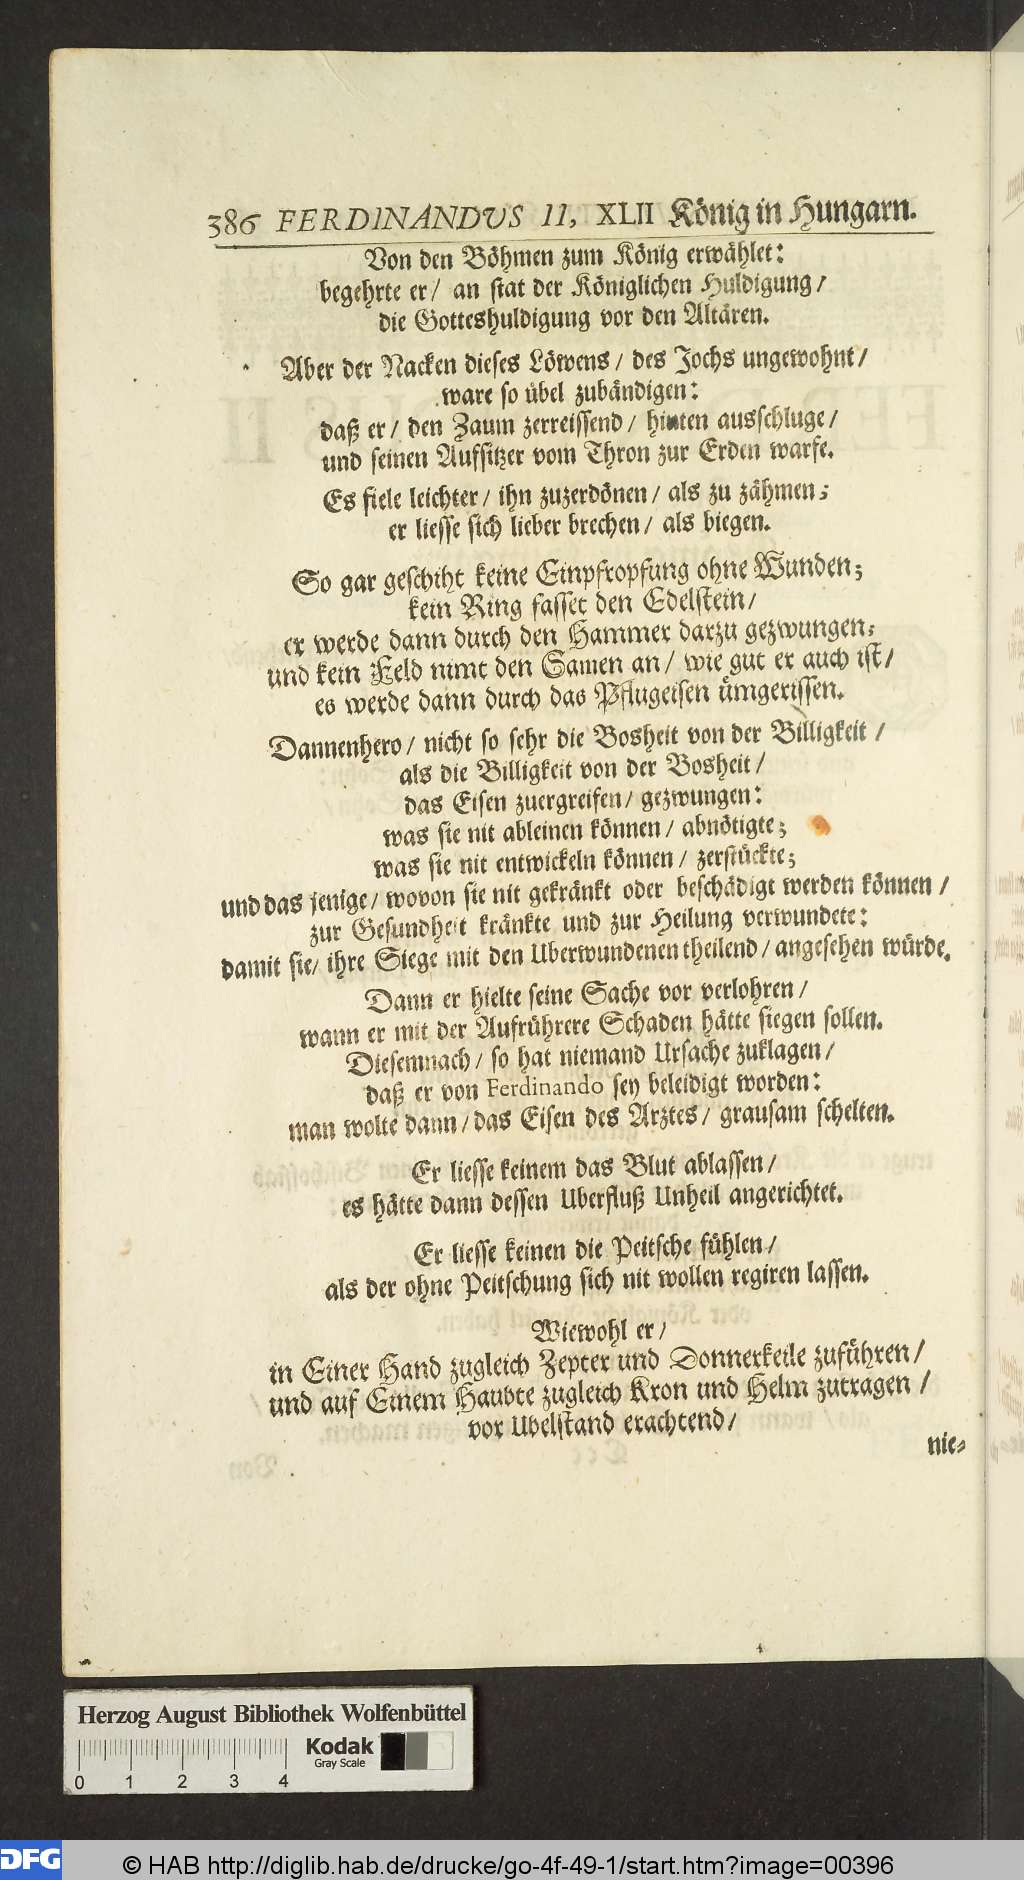 386 FERDINANDVS II, XLII König in Hungarn.
Von den Böhmen zum König erwählet:
begehrte er/ an stat der Königlichen Huldigung/
die Gotteshuldigung vor den Altären.
Aber der Nacken dieses Löwens/ des Jochs ungewohnt/
ware so übel zubändigen:
daß er/ den Zaum zerreissend/ hinten ausschluge/
und seinen Aufsitzer vom Thron zur Erden warfe.
Es fiele leichter/ ihn zuzerdönen/ als zu zähmen;
er liesse sich lieber brechen/ als biegen.
So gar geschiht keine Einpfropfung ohne Wunden;
kein Ring fasset den Edelstein/
er werde dann durch den Hammer darzu gezwungen;
und kein Feld nimt den Samen an/ wie gut er auch ist/
es werde dann durch das Pflugeisen ümgerissen.
Dannenhero/ nicht so sehr die Bosheit von der Billigkeit/
als die Billigkeit von der Bosheit/
das Eisen zuergreifen/ gezwungen:
was sie nit ableinen können/ abnötigte;
was sie nit entwickeln können/ zerstückte;
und das jenige/ wovon sie nit gekränkt oder beschädigt werden können/
zur Gesundheit kränkte und zur Heilung verwundete:
damit sie/ ihre Siege mit den Uberwundenen theilend/ angesehen würde.
Dann er hielte seine Sache vor verlohren/
wann er mit der Aufrührere Schaden hätte siegen sollen.
Diesemnach/ so hat niemand Ursache zuklagen/
daß er von Ferdinando sey beleidigt worden:
man wolte dann/ das Eisen des Arztes/ grausam schelten.
Er liesse keinem das Blut ablassen/
es hätte dann dessen Uberfluß Unheil angerichtet.
Er liesse keinen die Peitsche fühlen/
als der ohne Peitschung sich nit wollen regiren lassen.
Wiewohl er/
in Einer Hand zugleich Zepter und Donnerkeile zuführen/
und auf Einem Haubte zugleich Kron und Helm zutragen/
vor Ubelstand erachtend/
nie-
Herzog August Bibliothek Wolfenbüttel
Kodak
Gray Scale
0 1 2 3 4
DFG © HAB http://diglib.hab.de/drucke/go-4f-49-1/start.htm?image=00396